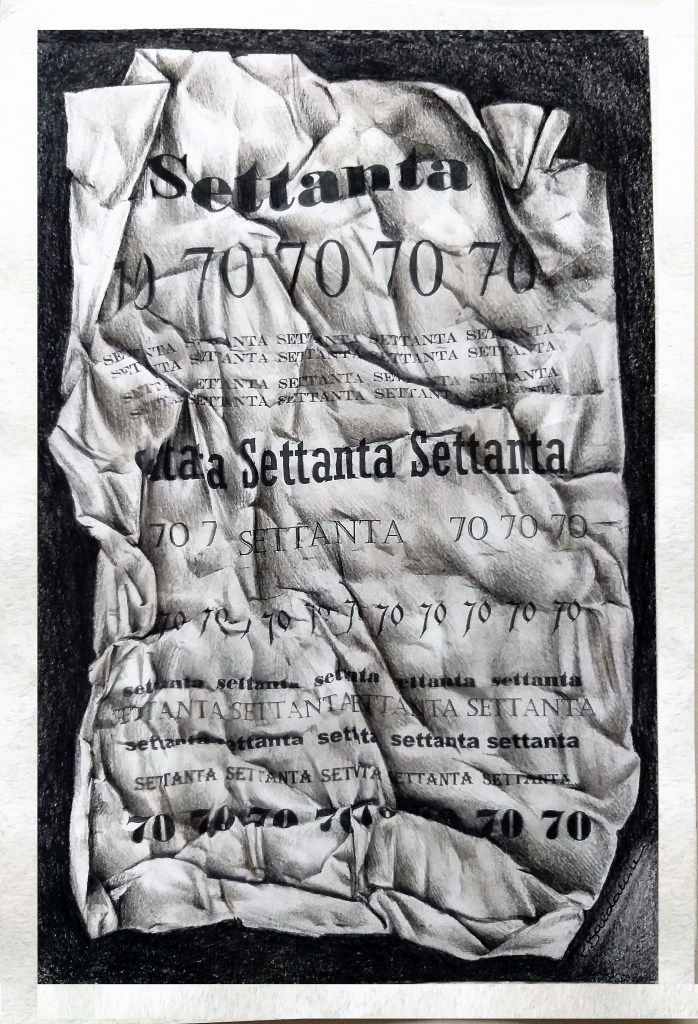 Settanta
70 70 70 70 70
SETTANTA SETTANTA SETTANTA SETTANTA SETTANTA
SETTANTA SETTANTA SETTANTA SETTANTA SETTANTA
SETTANTA SETTANTA SETTANTA SETTANTA SETTANTA
SETTANTA SETTANTA SETTANTA SETTANTA SETTANTA
Settanta Settanta
70 7 SETTANTA 70 70 70
70 70 70 70 7 70 70 70 70 70
settanta settanta settanta ettanta settanta
SETTANTA SETTANTA ETTANTA SETTANTA
settanta ettanta setta settanta settanta
SETTANTA SETTANTA SETVTA ETTANTA SETTANTA
70 70 70 70 70 70 70